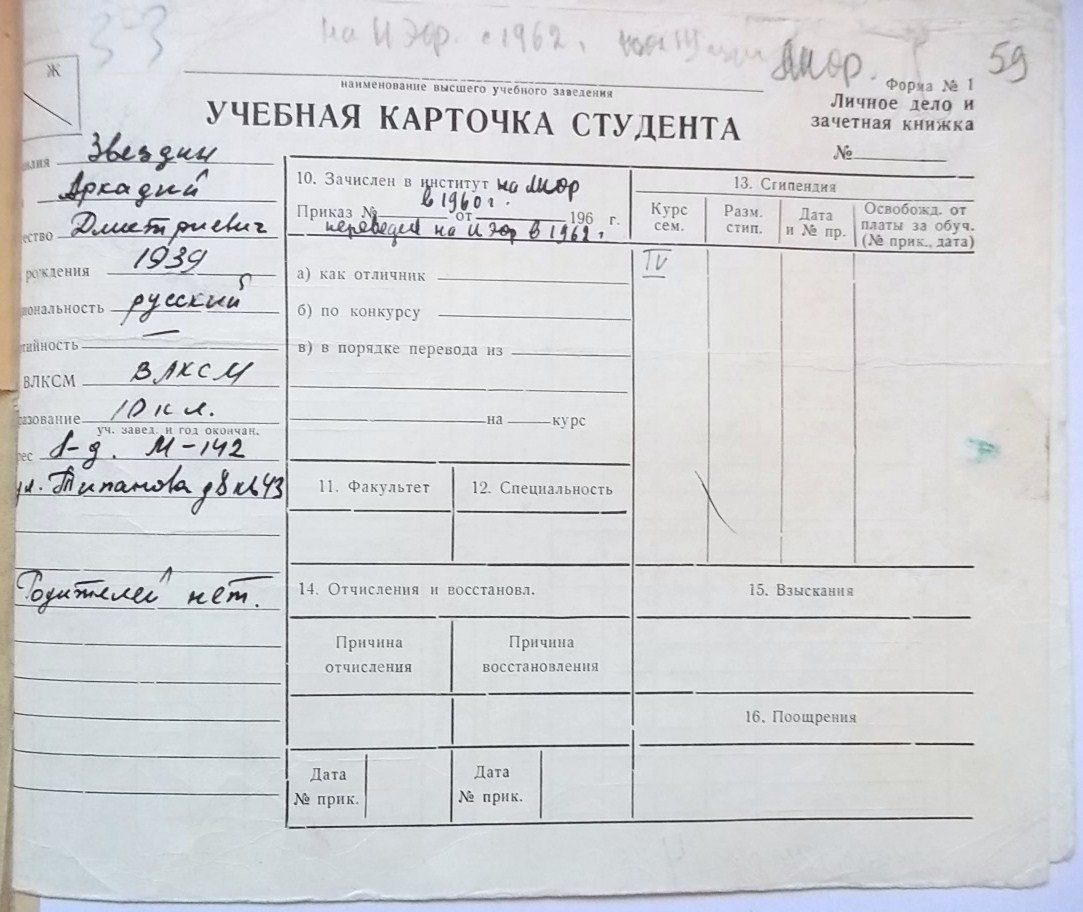 3-3
на ИЭор. с 1962 г.
ЛИОР.
59
Ж
наименование высшего учебного заведения
Форма № 1
УЧЕБНАЯ КАРТОЧКА СТУДЕНТА
Личное дело и
зачетная книжка
№
илия Звездин
Аркадий
ество Дмитриевич
рождения 1939
иональность русский
тийность —
ВЛКСМ ВЛКСМ
азование 10 кл.
уч. завед. и год окончан.
рес Л-д. М-142
ул. Типанова д 8 кв 43
Родителей нет.
10. Зачислен в институт на ЛИОР
в 1960 г.
Приказ № от 196 г.
переведен на ИЭор в 1962 г
а) как отличник
б) по конкурсу
в) в порядке перевода из
на курс
11. Факультет
12. Специальность
13. Стипендия
Курс
сем.
Разм.
стип.
Дата
и № пр.
Освобожд. от
платы за обуч.
(№ прик., дата)
IV
14. Отчисления и восстановл.
Причина
отчисления
Причина
восстановления
Дата
№ прик.
Дата
№ прик.
15. Взыскания
16. Поощрения